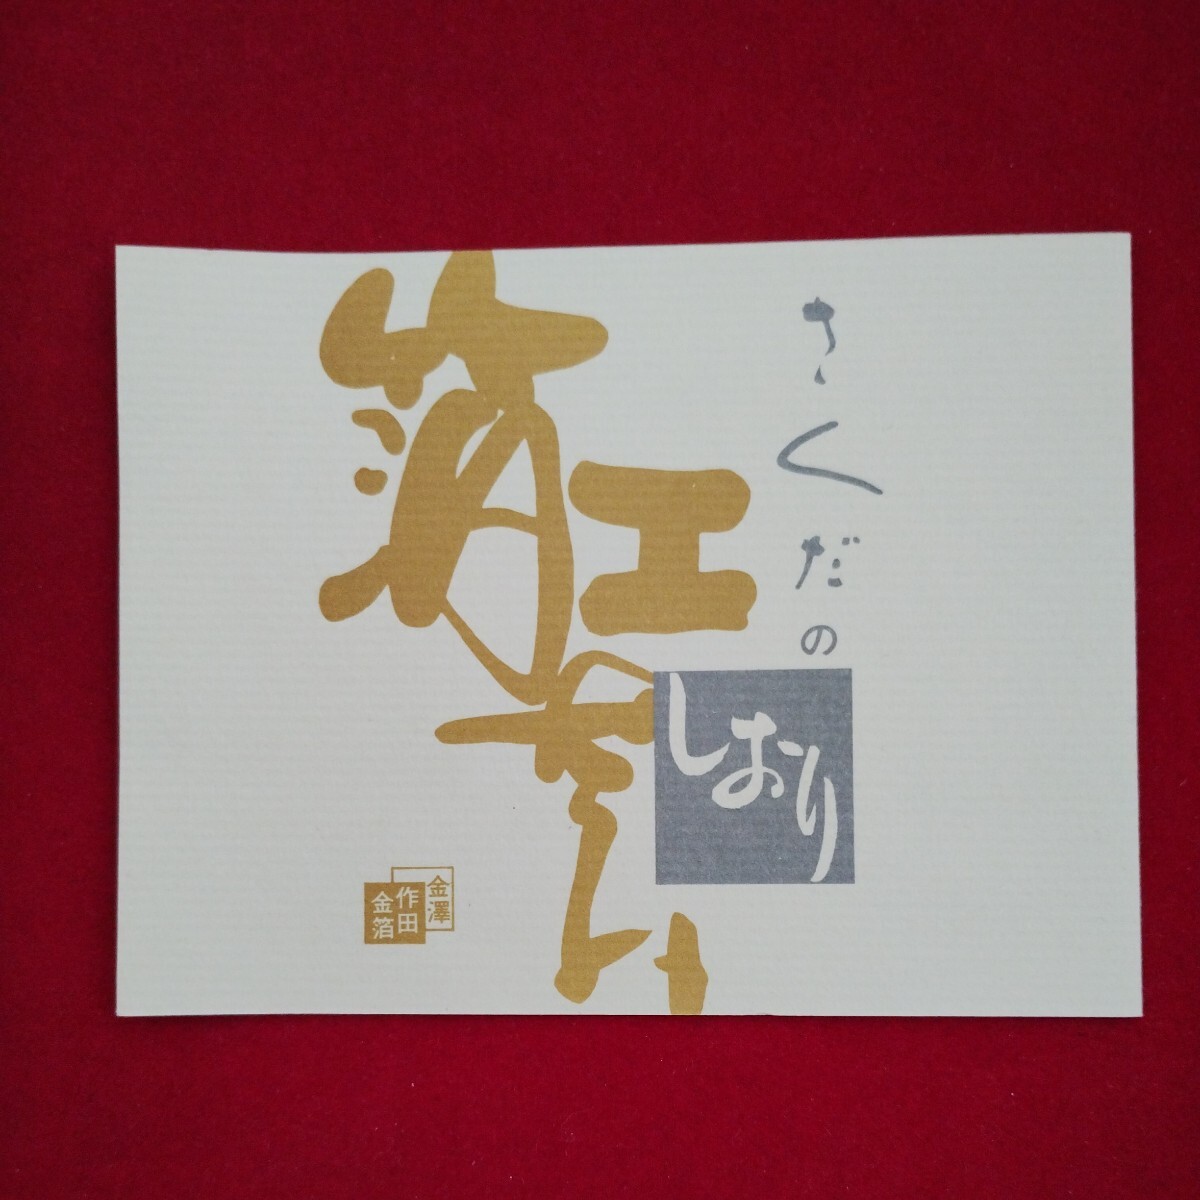 さくだの
しおり
箔工芸
金澤
作田
金箔